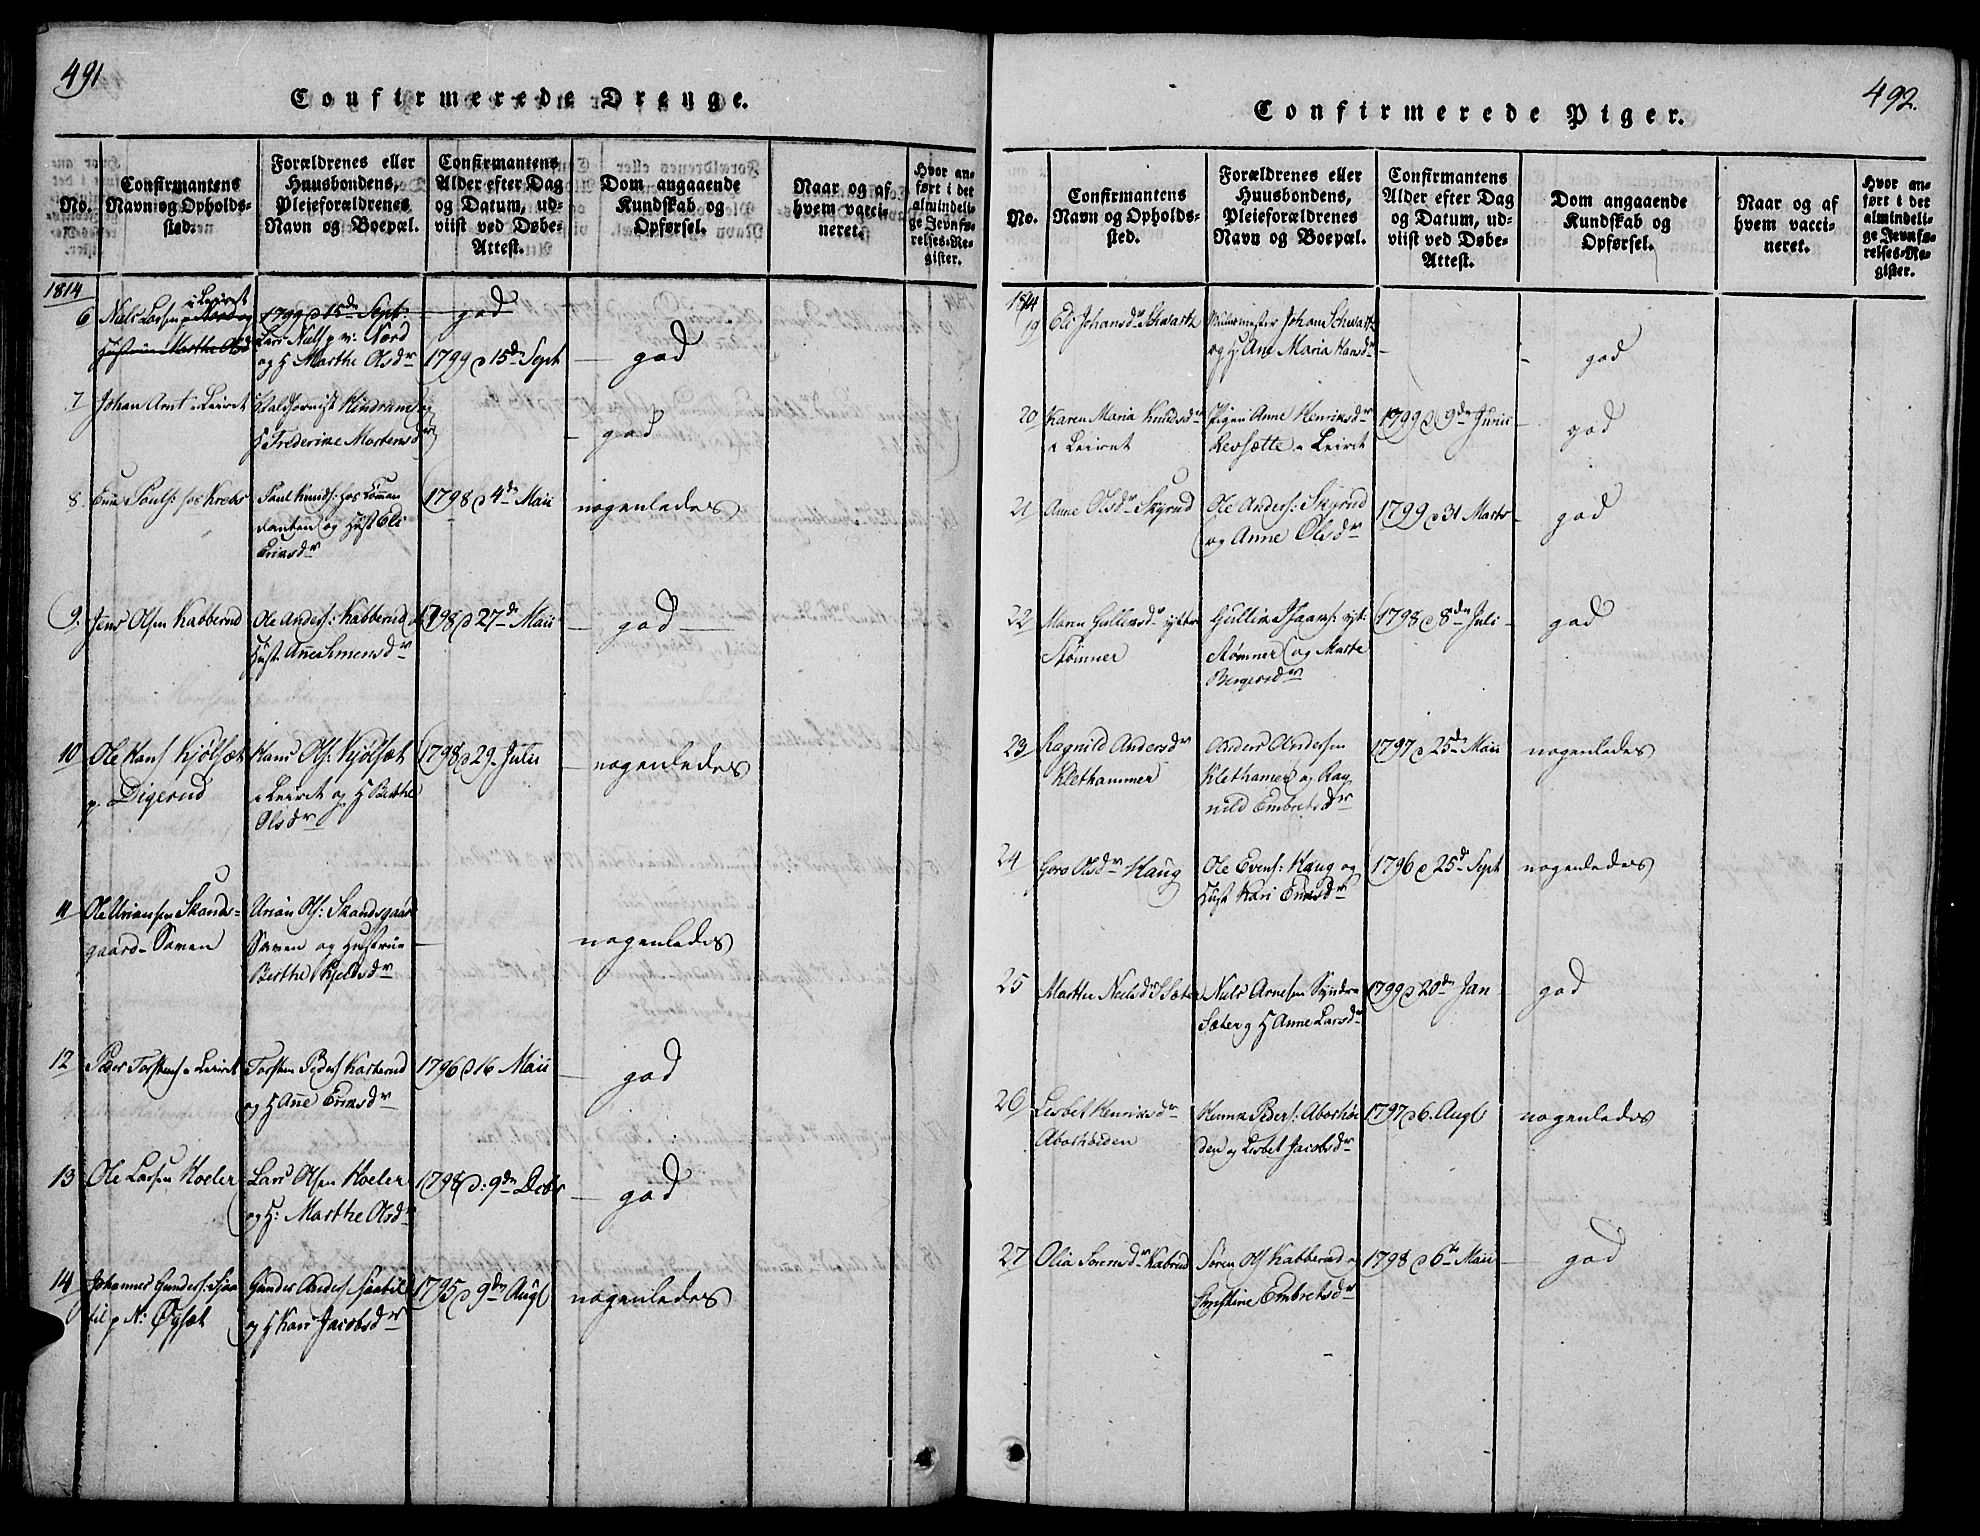 491
Confirmerede Drenge.
No.
Confirmantens
Navn og Opholds-
sted.
Forældrenes eller
Huusbondens,
Pleieforældrenes
Navn og Boepæl.
Confirmantens
Alder efter Dag
og Datum, ud-
viist ved Døbe-
Attest.
Dom angaaende
Kundskab og
Opførsel.
Naar og af
hvem vacci-
neret.
Hvor an-
ført i det
almindeli-
ge Jevnfø-
relses-Re-
gister.
1814
6 Niels Larsen i Leiret
Hustrue Marthe Olsd
1799 d 15de Sept.
god
Lars Niels p. v: Nord
og H Marthe Olsdr
1799 d 15de Sept
god
7 Johan Amt i Leiret
H Frederine Mortensdr
god
8. Povels: hos Krebs
Poul Knuds: hos Commen
danten og Hust Eli
Ericsdr
1798 d 4de Maii
nogenledes
9. Jens Olsen Kabberud
Ole Anders: Kabberud
Hust: Anne Simensdr
1798 d 27de Maii
god
10 Ole Hans Kjølsæt
p. Digerud
Hans Ols: Kjølsæt
i Leiret og H Berthe
Olsdr
1798 d 29. Julii
nogenledes
11 Ole Uriansen Skands-
gaard-Sonen
Urian Ols: Skandsgaar
Sonen og Hustrue
Berthe Kjeldsdr
nogenledes
12 Peder Torstens i Leiret
Torsten Peders Kasterud
og H Anne Ericsdr
1796 d 16 Maii
god
13 Ole Larsen Hoeler
Lars Olsen Hoeler
og H: Marthe Olsdr
1798 d: 9de Decbr
god
14 Johannes Gunders: Sjaa
til p N: Øgset
Gunder Anders Sjaatil
og H Kari Jacobsdr
1795 d 9de Augs
nogenledes
492.
Confirmerede Piger.
No.
Confirmantens
Navn og Opholds-
sted.
Forældrenes eller
Huusbondens,
Pleieforældrenes
Navn og Boepæl.
Confirmantens
Alder efter Dag
og Datum, ud-
viist ved Døbe-
Attest.
Dom angaaende
Kundskab og
Opførsel.
Naar og af
hvem vacci-
neret.
Hvor an-
ført i det
almindeli-
ge Jevnfø-
relses-Re-
gister.
1814
19 Eli Johansdr Schwartz
Johan Schwartz
og H Ane Maria Hansdr
god
20 Karen Maria Knudsdr
i Leiret
Pigen Anne Henriksdr
Revsætte i Leiret
1799 d 9de Junii
god
21 Anne Olsdr Skyrud
Ole Anders: Skyrud
og Anne Olsdr
1799 d 31 Marts
god
22 Maren Gullensdr ytter
Stømner
Gullik Isaacs: yt:
Stømner og Marte
Bergersdr
1798 d 8de Juli
god
23 Ragnild Andersdr
Klethammer
Anders Andersen
Klethamer og Rag
nild Embretsdr
1797 d 25de Maii
nogenledes
24 Goro Olsdr Haug
Ole Evens: Haug og
Hust Kari Ericsdr
1796 d 25de Sept
nogenledes
25 Marthe Nielsdr S Sæter
Niels Arnesen Syndre
Sæter og H Anne Larsdr
1799 d 20de Jan
god
26 Lisbet Henriksdr
Aborhøiden
Henrik Peders: Aborhøi
den og Lisbet Jacobsdr
1797 d 6. Augs
nogenledes
27 Olia Sørensdr Kabrud
Søren Ols Kabberud o
Christine Embretsdr
1798 d 6te Maii
god